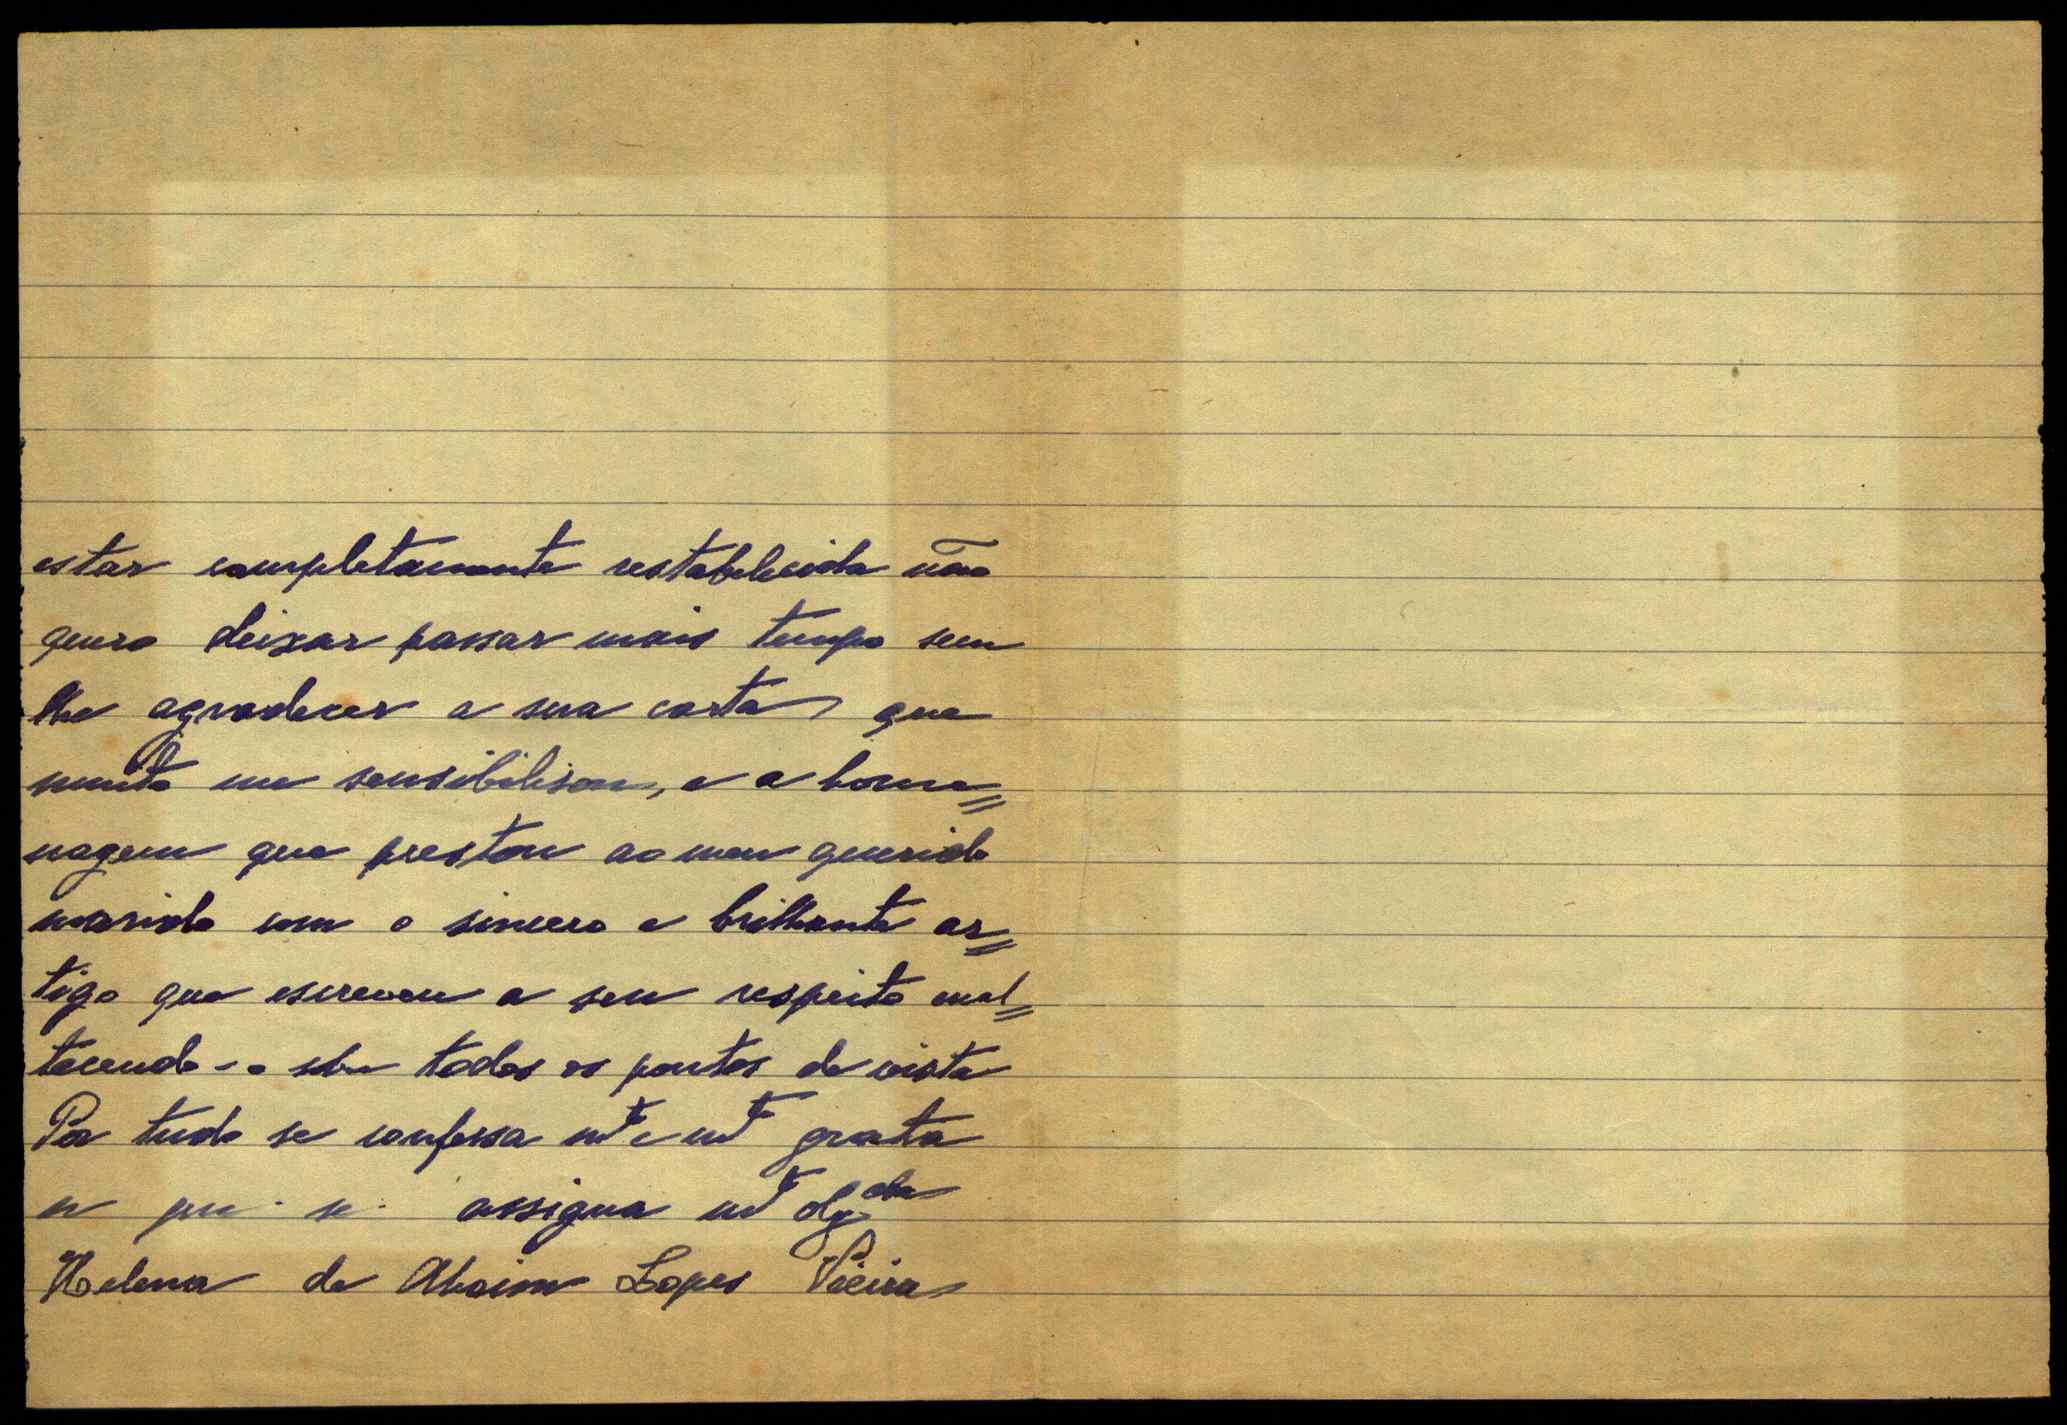 estar completamente restabelecida não
quero deixar passar mais tempo sem
lhe agradecer a sua carta que
muito me sensibilisou, e a home=
nagem que prestou ao meu querido
marido com o sincero e brilhante ar=
tigo que escreveu a seu respeito enal=
tecendo-o sob todos os pontos de vista
Por tudo se confessa mto e mto grata
assigna mto obgda
Helena de Aboim Lopes Vieira